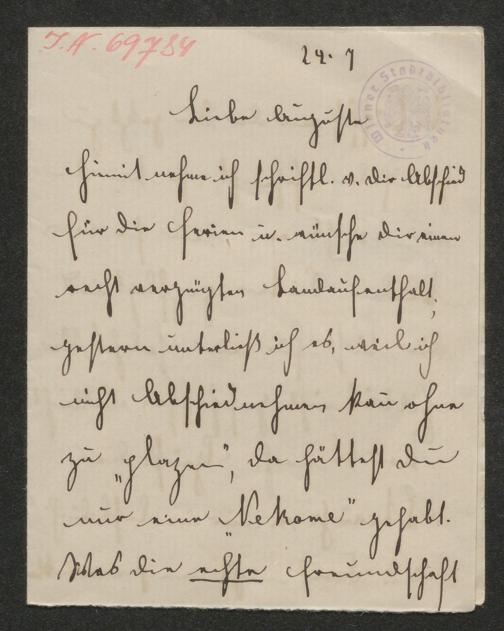 I.N. 69784
24. 7
Wiener Stadtbibliothek
Liebe Auguste
Hiemit nehme ich schriftl. v. Dir Abschied
für die Ferien u. wünsche Dir einen
recht vergnügten Landaufenthalt;
gestern unterließ ich es, weil ich
nicht Abschiednehmen kan ohne
zu „plazen“, da hättest Du
nur eine „Nekome“ gehabt.
Was die echte Freundschaft